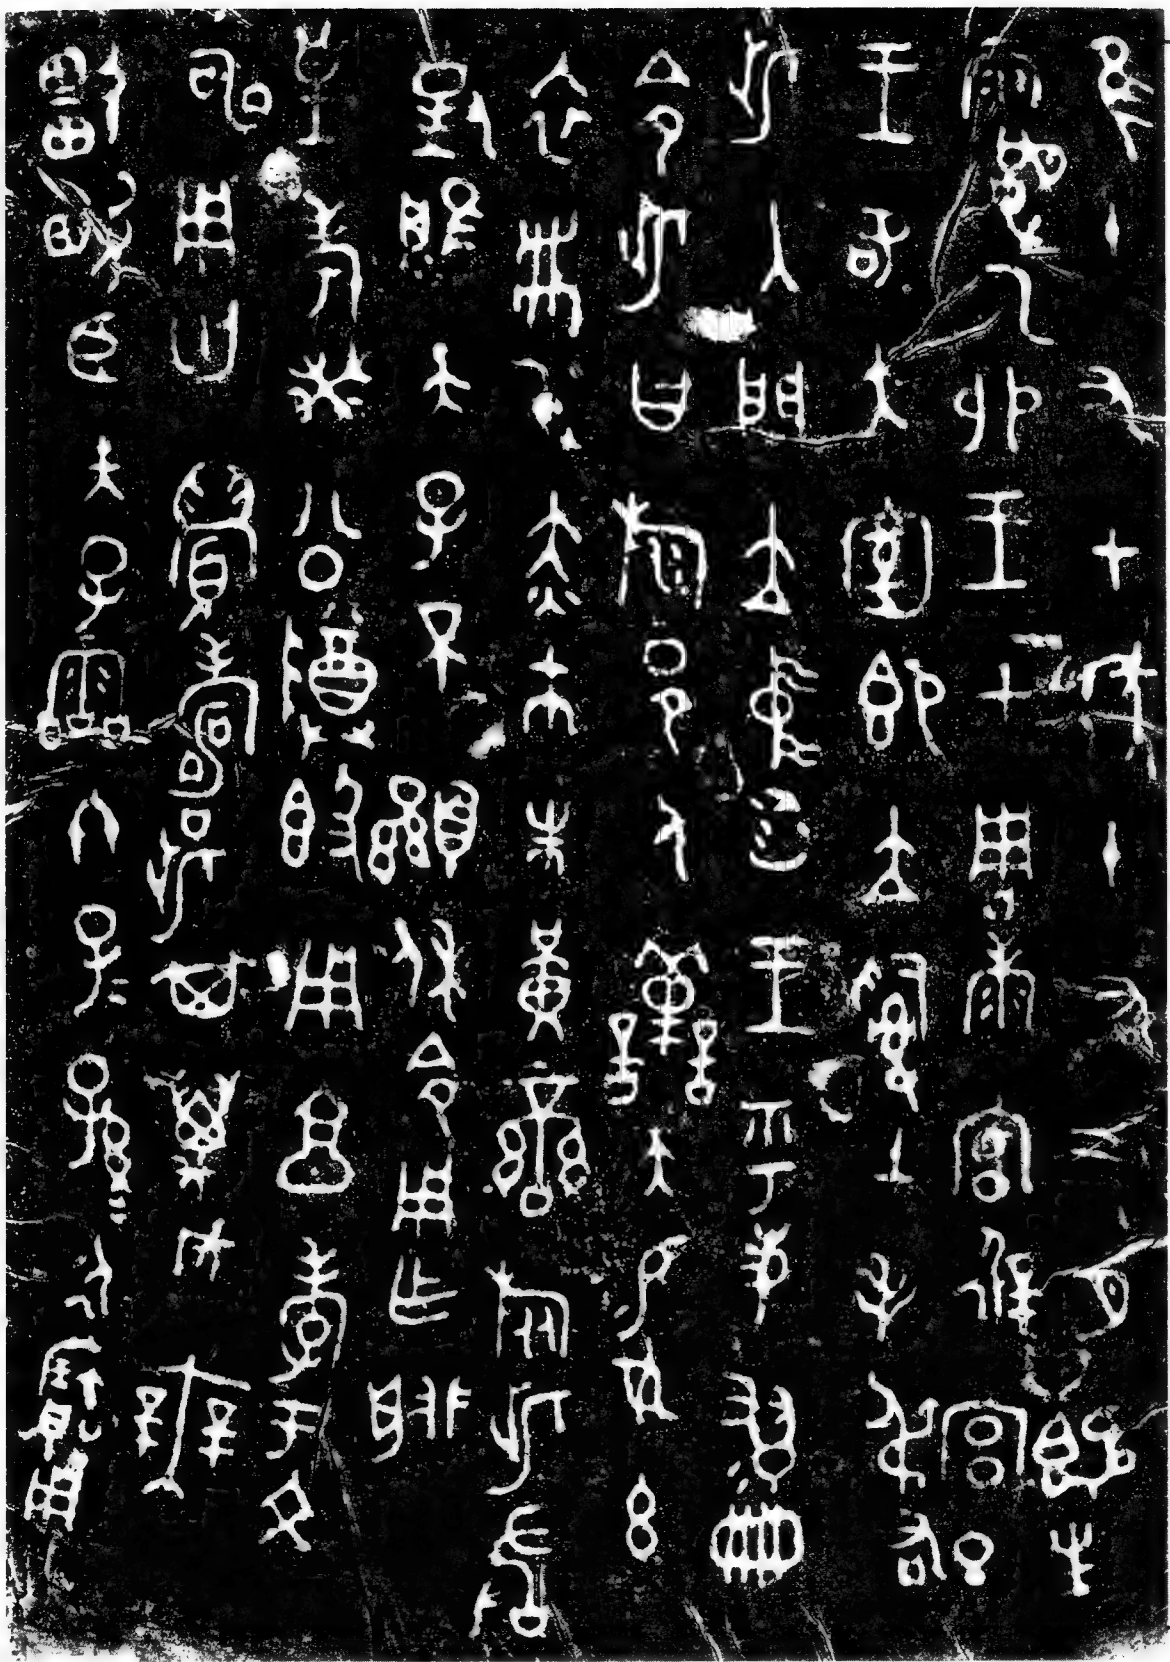 隹十又七年十又二月既生
霸乙卯王才周康宮徲宮旦
王各大室即立𤔲土毛弔右
此入門立中廷王乎史翏冊
令此曰旅邑人善夫易女玄
衣黹屯赤巿朱黃䜌旂此敢
對揚天子不顯休令用乍朕
皇考癸公尊𣪘用享孝于文
申用匄眉壽此其萬年無疆
畯臣天子霝冬子孫永寶用